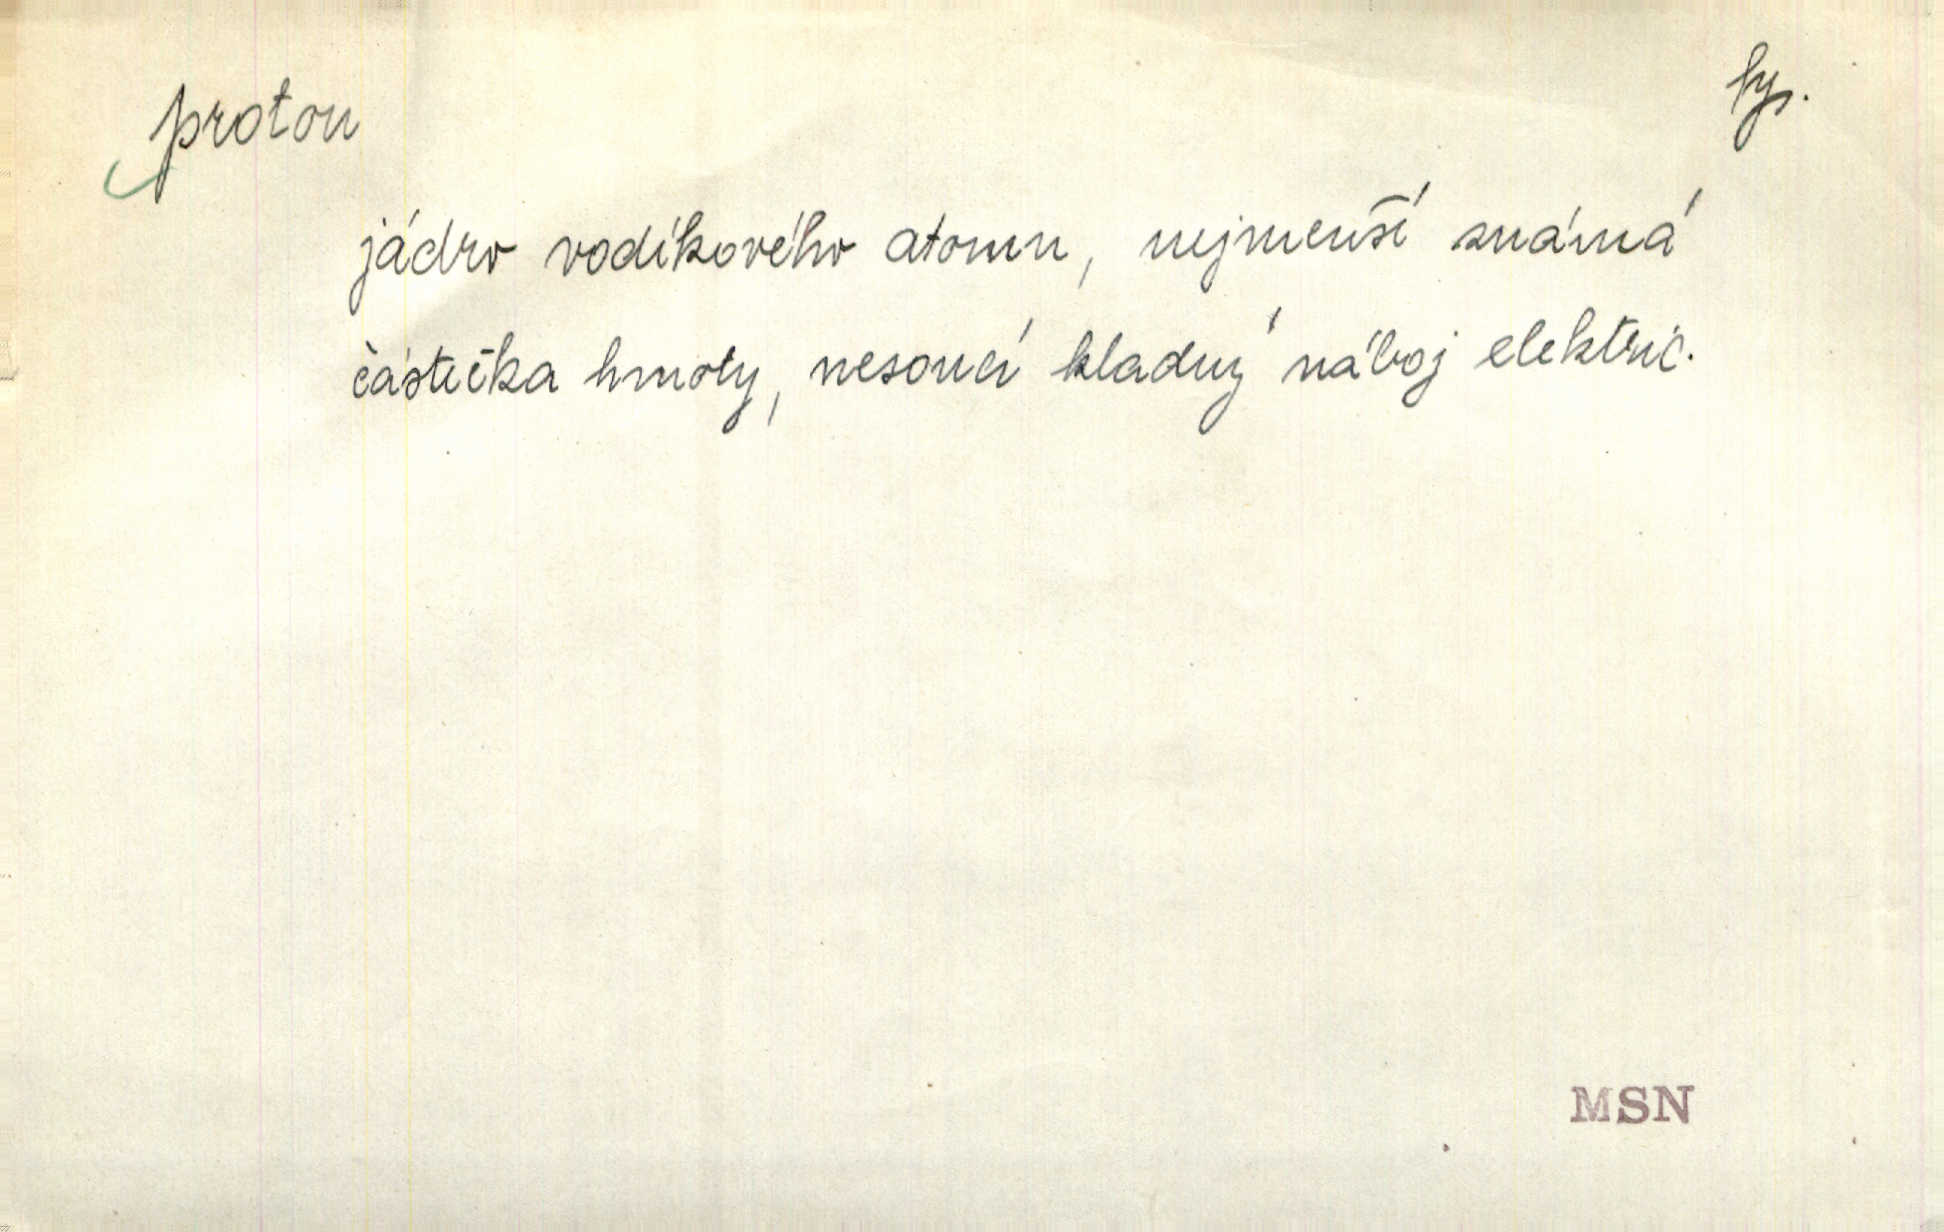 proton
fys.
jádro vodíkového atomu, nejmenší známá
částečka hmoty, nesoucí kladný náboj elektric.
MSN